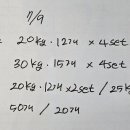 7/9
= 20kg · 12개 × 4set
30kg · 15개 × 4set
20kg · 12개 × 2set / 25k
50개 / 20개